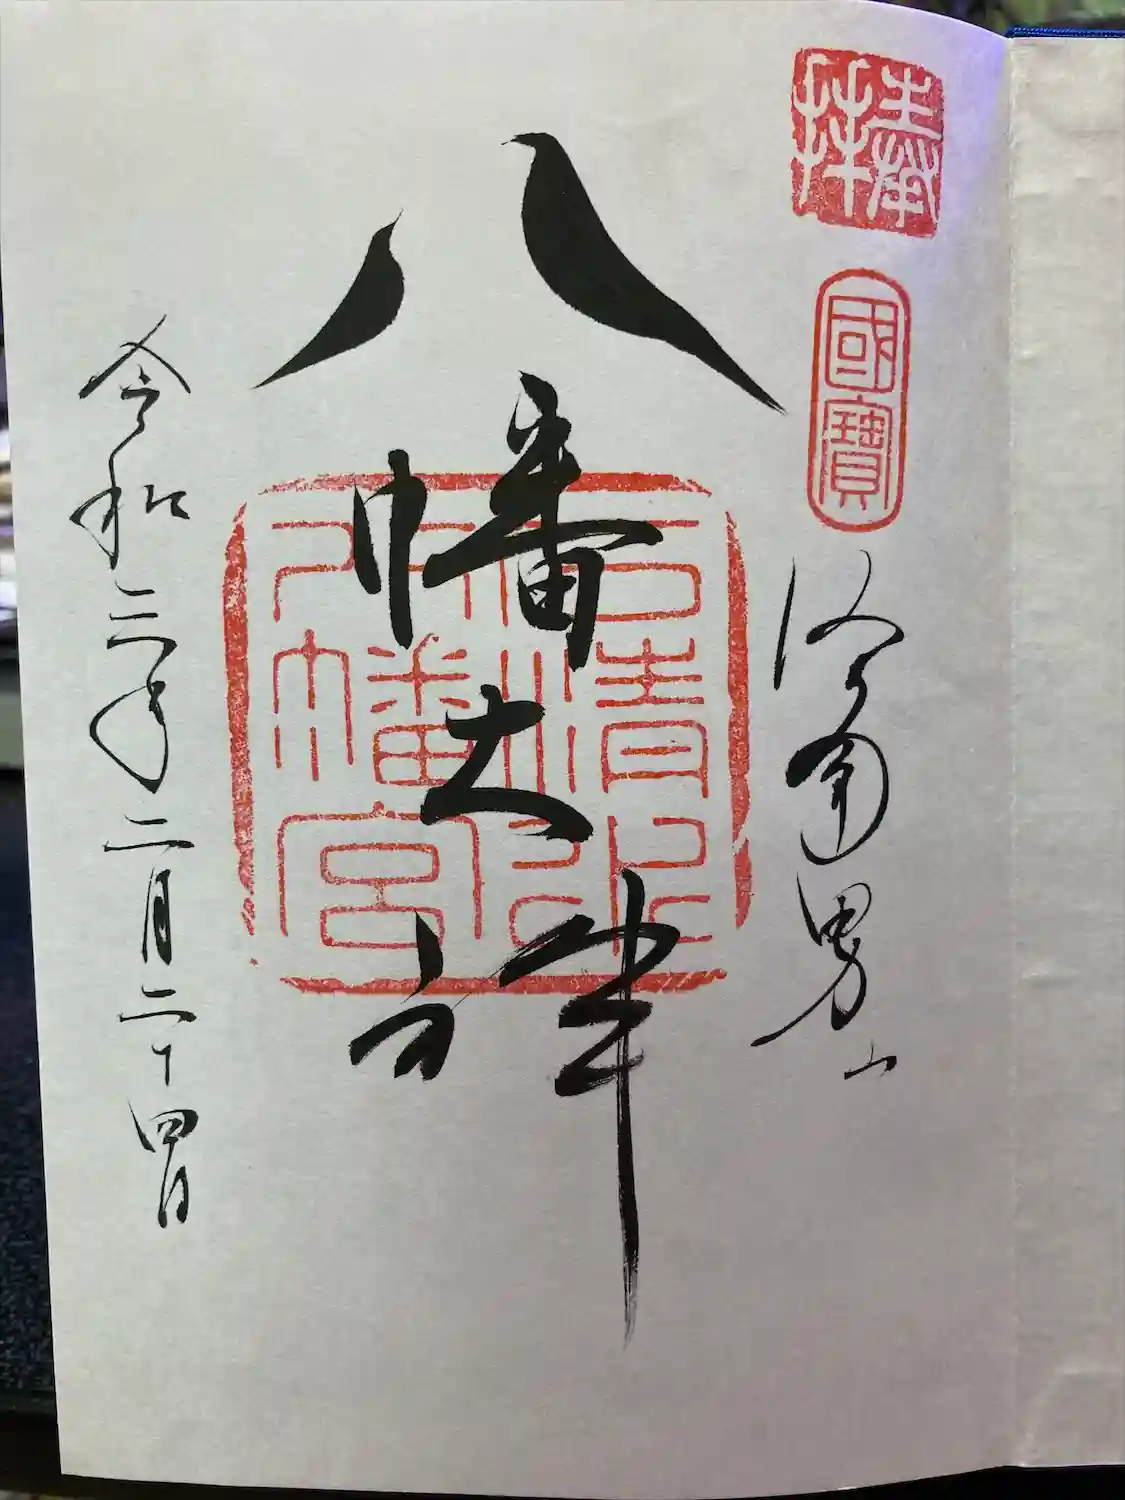 奉拝
國寶
洛南男山
八幡大神
石清水
八幡宮
令和三年二月二十四日